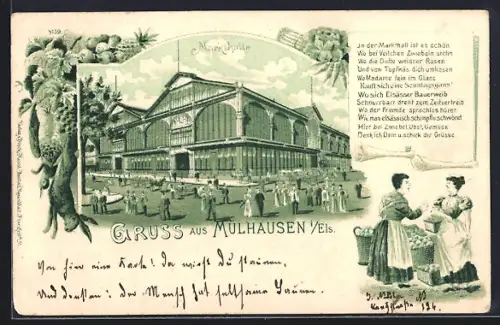 4139
Markthalle
In der Markthall ist es schön
Wo bei Veilchen Zwiebeln stehn
Wo die Düfte weisser Rosen
Und von Topfkäs dich umkosen
Wo Madame fein im Glanz
Kauft sich eine Sonntagsgans!
Wo sich Elsässer Bauerweib
Schnurrbart dreht zum Zeitvertreib
Wo der Fremde sprachlos höret
Wie man elsässisch schimpft u. schwört
Hier bei Zwiebel, Obst, Gemüse
Denk ich Dein u. schick dir Grüsse
GRUSS AUS MÜLHAUSEN i/Els.
Von hier eine Karte! da wirst du staunen,
Und denken: der Mensch hat seltsame Launen.